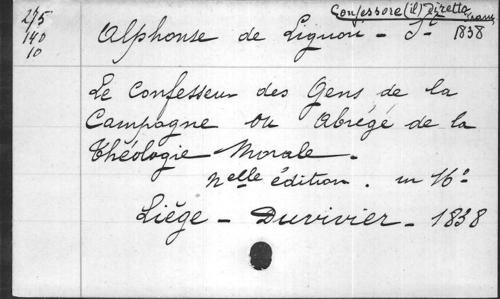 275
140
10
Confessore (il) diretto
Trans.
Alphonse de Liguori - St - 1838
Le Confesseur des Gens de la
Campagne ou Abrégé de la
Théologie Morale.
Nelle édition. in 16°
Liège - Duvivier - 1838